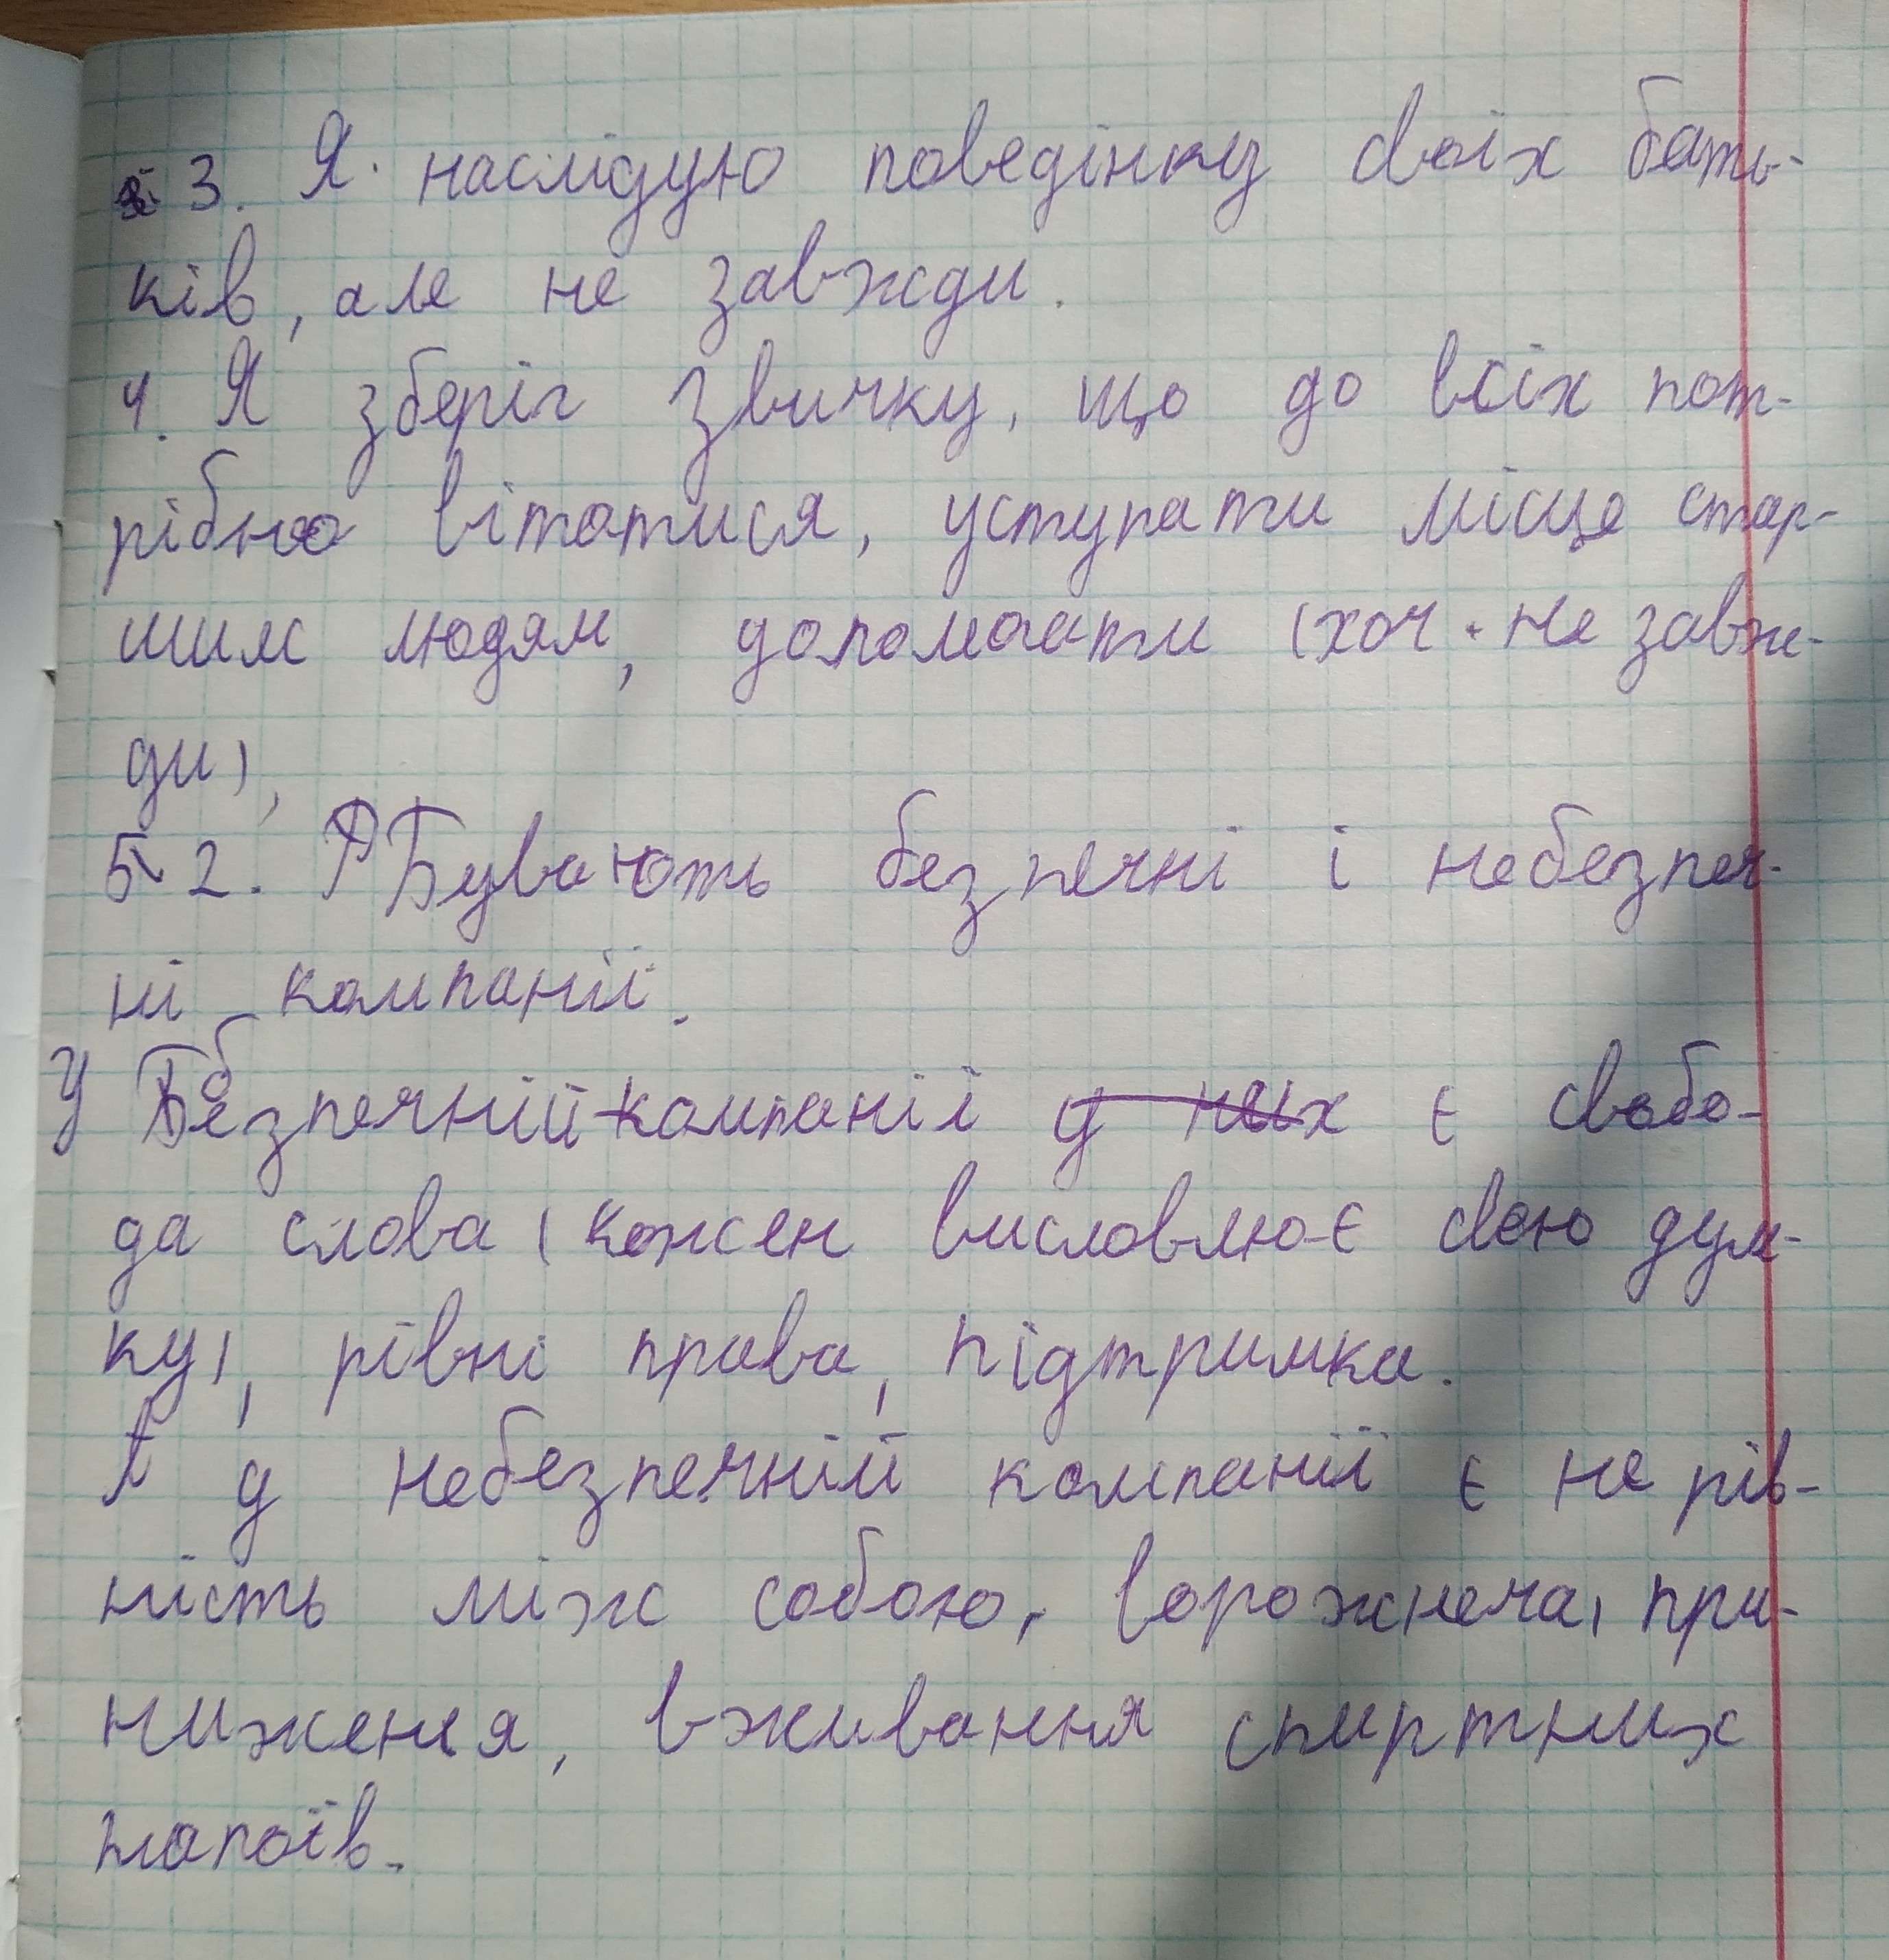 3. Я наслідую поведінку своїх бать-
ків, але не завжди.
4. Я зберіг звичку, що до всіх пот-
рібно вітатися, уступати місце стар-
шим людям, допомагати (хоч не завж-
ди),
2. Бувають безпечні і небезпеч-
ні компанії.
У безпечній компанії у них є свобо-
да слова (кожен висловлює свою дум-
ку), рівні права, підтримка.
А у небезпечній компанії є не рів-
ність між собою, ворожнеча, при-
ниження, вживання спиртних
напоїв.